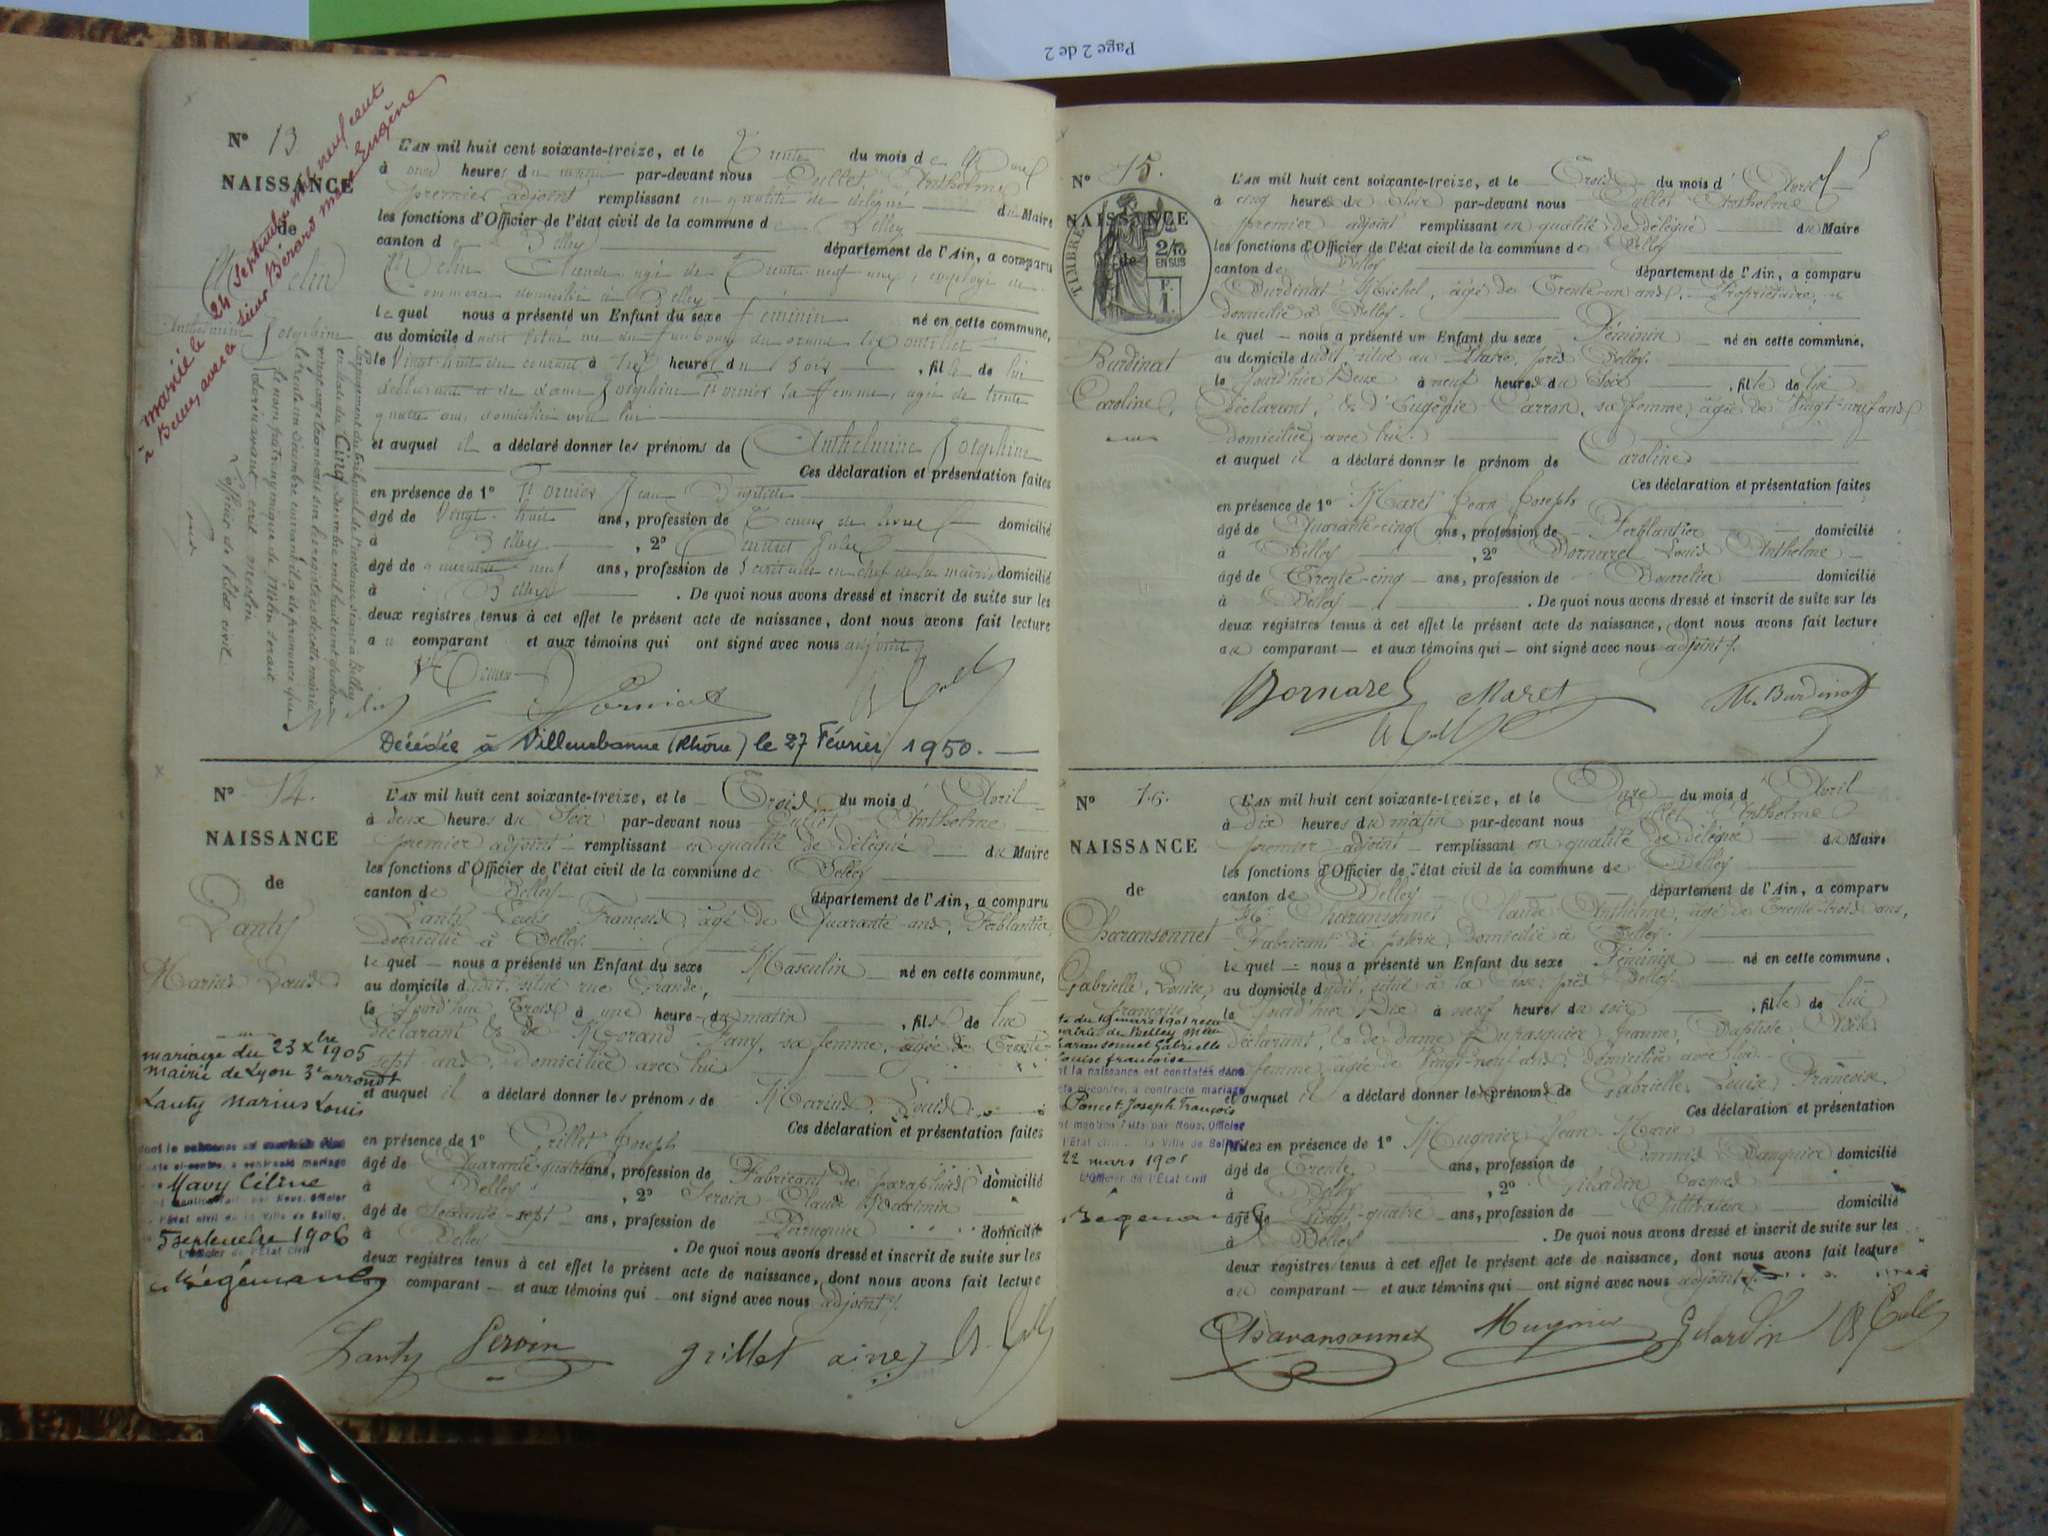 Page 2 de 2
N° 13
NAISSANCE
de
Melin
Anthelmine Joséphine
marié le 24 Septembre mil neuf cent
à Belley avec le sieur Bérard Eugène
L'AN mil huit cent soixante-treize, et le Trente du mois de
à heures du matin par-devant nous Cullet Anthelme
premier adjoint remplissant en qualité de délégué du Maire
les fonctions d'Officier de l'état civil de la commune de Belley
canton de Belley département de l'Ain, a comparu
Melin Claude agé de Trente neuf ans, employé de
Commerce domicilié à Belley
lequel nous a présenté un Enfant du sexe féminin né en cette commune,
au domicile
le Vingt huit du courant à heures du soir, fille de lui
déclarant et de dame Joséphine Fornier sa femme, agée de trente
quatre ans, domiciliée avec lui
et auquel il a déclaré donner les prénoms de Anthelmine Joséphine
Ces déclaration et présentation faites
en présence de 1° Fornier Jean Baptiste
âgé de Vingt-huit ans, profession de Teneur de livres domicilié
à Belley, 2°
âgé de quarante neuf ans, profession de Secrétaire en chef de la mairie domicilié
à Belley. De quoi nous avons dressé et inscrit de suite sur les
deux registres tenus à cet effet le présent acte de naissance, dont nous avons fait lecture
au comparant et aux témoins qui ont signé avec nous adjoint
Décédée à Villeurbanne (Rhône) le 27 Février 1950.
N° 14.
NAISSANCE
de
Lanty
Marius Louis
mariage du 23 Xbre 1905
mairie de Lyon 3e arrondt
Lanty Marius Louis
Mavy Céline
5 septembre 1906
L'Officier de l'État Civil
L'AN mil huit cent soixante-treize, et le Trois du mois d'Avril
à deux heures du Soir par-devant nous Cullet Anthelme
premier adjoint remplissant en qualité de délégué du Maire
les fonctions d'Officier de l'état civil de la commune de Belley
canton de Belley département de l'Ain, a comparu
Lanty Louis François, âgé de Quarante ans, Ferblantier,
domicilié à Belley.
lequel nous a présenté un Enfant du sexe Masculin né en cette commune,
au domicile dudit, situé rue Grande,
le jourd'hui Trois à une heure du matin, fils de lui
déclarant & de Morand Fany, sa femme, agée de Trente
sept ans, domiciliée avec lui
et auquel il a déclaré donner les prénoms de Marius, Louis
Ces déclaration et présentation faites
en présence de 1° Grillet Joseph
âgé de Quarante-quatre ans, profession de Fabricant de parapluies domicilié
à Belley, 2° Peroin Claude
âgé de Soixante-sept ans, profession de Perruquier domicilié
à Belley. De quoi nous avons dressé et inscrit de suite sur les
deux registres tenus à cet effet le présent acte de naissance, dont nous avons fait lecture
au comparant et aux témoins qui ont signé avec nous adjoint
Lanty Peroin grillet ainé
N° 15.
NAISSANCE
de
TIMBRE
2/10
EN SUS
F.
1.
Burdinat
Caroline
L'AN mil huit cent soixante-treize, et le Trois du mois d'Avril
à cinq heures du Soir par-devant nous Cullet Anthelme
premier adjoint remplissant en qualité de délégué du Maire
les fonctions d'Officier de l'état civil de la commune de Belley
canton de Belley département de l'Ain, a comparu
Burdinat Michel, âgé de Trente-un ans, Propriétaire,
domicilié à Belley.
lequel nous a présenté un Enfant du sexe Féminin né en cette commune,
au domicile dudit situé au près Belley.
le jourd'hier Deux à neuf heures du Soir, fille de lui
Déclarant, & d'Eugénie Carron, sa femme, âgée de Vingt-neuf ans
domiciliée avec lui.
et auquel il a déclaré donner le prénom de Caroline
Ces déclaration et présentation faites
en présence de 1° Maret Jean Joseph
âgé de Quarante-cinq ans, profession de Ferblantier domicilié
à Belley, 2° Bornarel Louis Anthelme
âgé de Trente-cinq ans, profession de Bourrelier domicilié
à Belley. De quoi nous avons dressé et inscrit de suite sur les
deux registres tenus à cet effet le présent acte de naissance, dont nous avons fait lecture
au comparant et aux témoins qui ont signé avec nous adjoint
Bornarel Maret M. Burdinat
N° 16.
NAISSANCE
de
Charansonnet
Gabrielle, Louise,
Françoise
Charansonnet Gabrielle
Louise françoise
Poncet Joseph François
22 mars 1901
L'Officier de l'État Civil
L'AN mil huit cent soixante-treize, et le Onze du mois d'Avril
à dix heures du matin par-devant nous Cullet Anthelme
premier adjoint remplissant en qualité de délégué du Maire
les fonctions d'Officier de l'état civil de la commune de Belley
canton de Belley département de l'Ain, a comparu
Mr Charansonnet Claude Anthelme, âgé de Trente-trois ans,
Fabricant de poterie, domicilié à Belley.
lequel nous a présenté un Enfant du sexe Féminin né en cette commune,
au domicile dudit, situé à la près Belley
le jourd'hier Dix à neuf heures du soir, fille de lui
déclarant, & de dame Dupasquier Jeanne, Baptiste
femme, âgée de Vingt-neuf ans, domiciliée avec lui
et auquel il a déclaré donner les prénoms de Gabrielle, Louise, Françoise.
Ces déclaration et présentation
faites en présence de 1° Mugnier Jean Marie
âgé de Trente ans, profession de Commis Banquier domicilié
à Belley, 2°
âgé de Vingt-quatre ans, profession de Cultivateur domicilié
à Belley. De quoi nous avons dressé et inscrit de suite sur les
deux registres tenus à cet effet le présent acte de naissance, dont nous avons fait lecture
au comparant et aux témoins qui ont signé avec nous adjoint
Charansonnet Mugnier